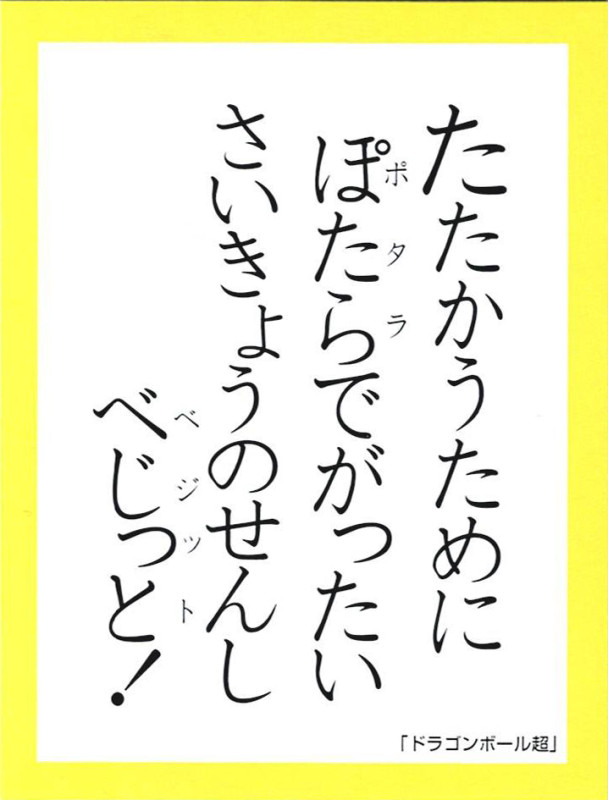 たたかうために
ぽたらでがったい
ポタラ
さいきょうのせんし
べじっと!
ベジット
「ドラゴンボール超」